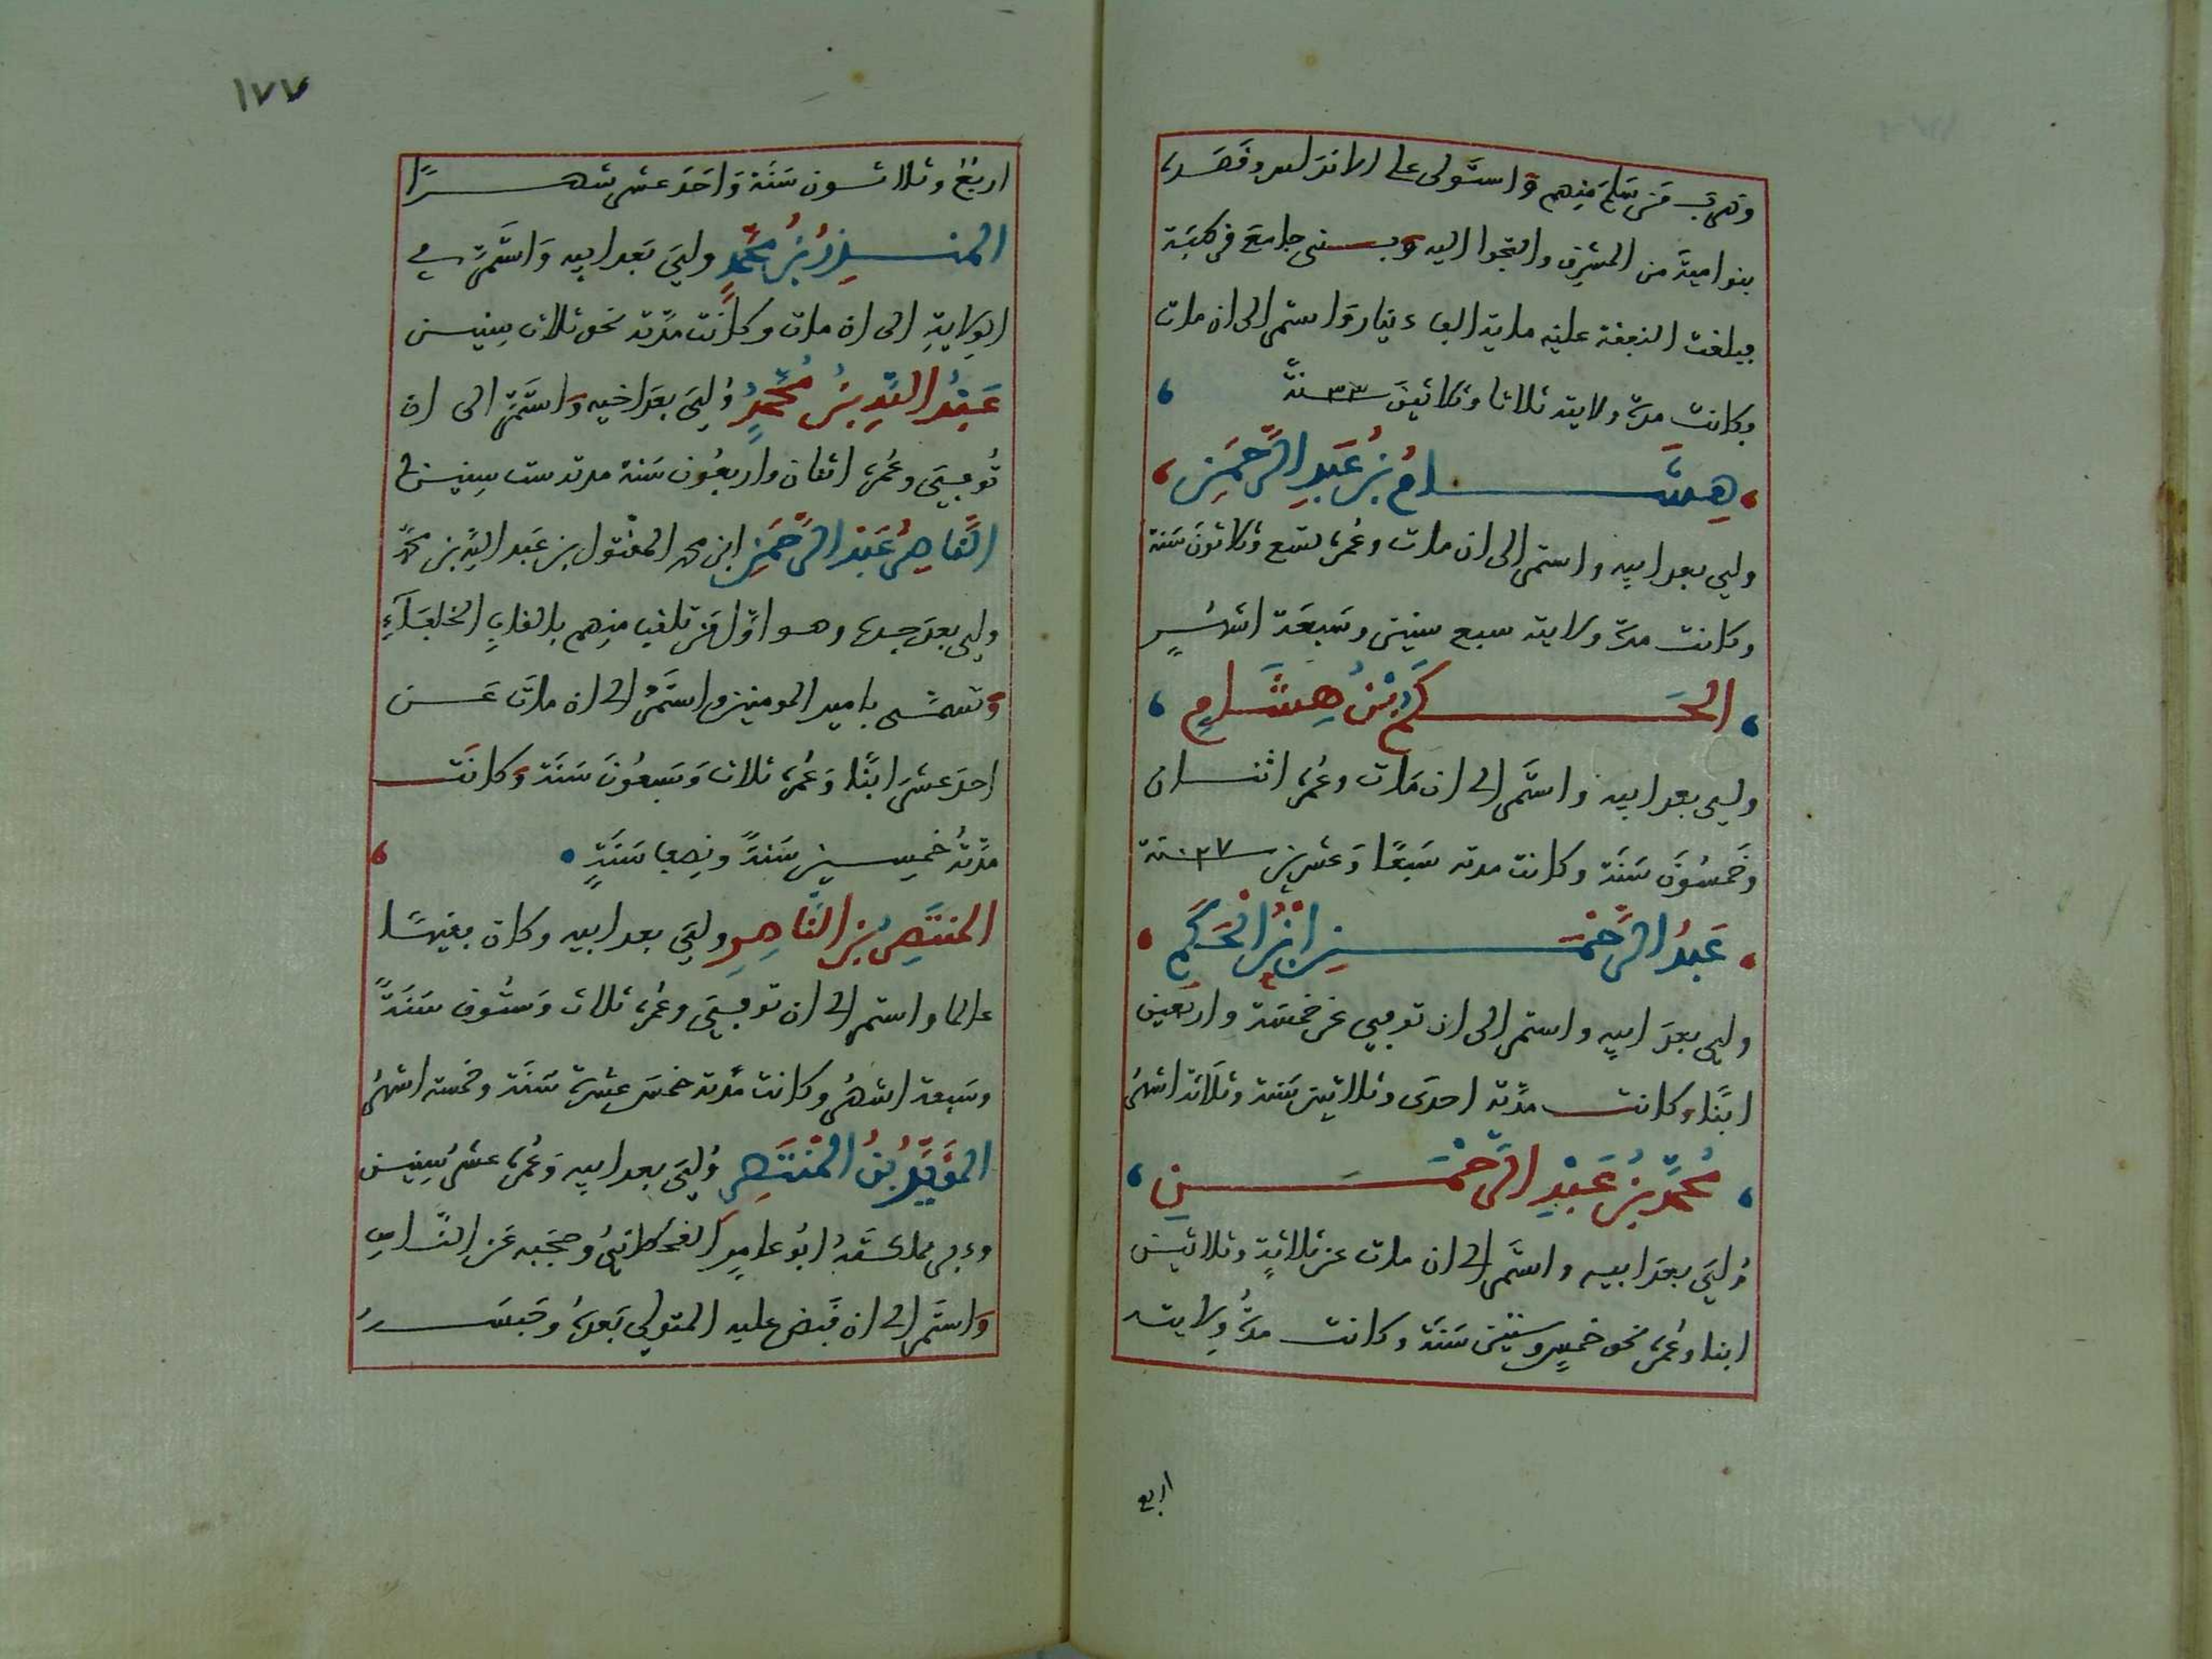 وهرب من سلم منهم واستولى على الاندلس وقصده
بنو امية من المشرق والتجوا اليه وبنى جامع قرطبة
فبلغت النفقة عليه ماية الف دينار واستمر الى ان مات
وكانت مدة ولايته ثلاثا وثلاثين ٣٣ سنة
هشام بن عبد الرحمن
ولي بعد ابيه واستمر الى ان مات وعمره تسع وثلاثون سنة
وكانت مدة ولايته سبع سنين وسبعة اشهر
الحكم بن هشام
ولي بعد ابيه واستمر الى ان مات وعمره اثنان
وخمسون سنة وكانت مدته سبعا وعشرين ٢٧ سنة
عبد الرحمن ابن الحكم
ولي بعد ابيه واستمر الى ان توفي عن خمسة واربعين
ابنا وكانت مدته احدى وثلاثين سنة وثلاثة اشهر
محمد بن عبد الرحمن
ولي بعد ابيه واستمر الى ان مات عن ثلاثة وثلاثين
ابنا وعمره نحو خمس وستين سنة وكانت مدة ولايته
اربع
١٧٧
اربع وثلاثون سنة واحد عشر شهرا
المنذر بن محمد ولي بعد ابيه واستمر في
الولاية الى ان مات وكانت مدته نحو ثلاث سنين
عبد الله بن محمد ولي بعد اخيه واستمر الى ان
توفي وعمره اثنان واربعون سنة مدته ست سنين
الناصر عبد الرحمن ابن محمد المقتول بن عبد الله بن محمد
ولي بعد جده وهو اول من تلقب منهم بالقاب الخلفاء
وتسمى بامير المومنين واستمر الى ان مات عن
احد عشر ابنا وعمره ثلاث وسبعون سنة وكانت
مدته خمسين سنة ونصف سنة
المنتصر بن الناصر ولي بعد ابيه وكان فقيها
عالما واستمر الى ان توفي وعمره ثلاث وستون سنة
وسبعة اشهر وكانت مدته خمس عشرة سنة وخمسة اشهر
المؤيد بن المنتصر ولي بعد ابيه وعمره عشر سنين
ودبر مملكته ابو عامر القحطاني وحجبه عن الناس
واستمر الى ان قبض عليه المتولي بعده وحبسه